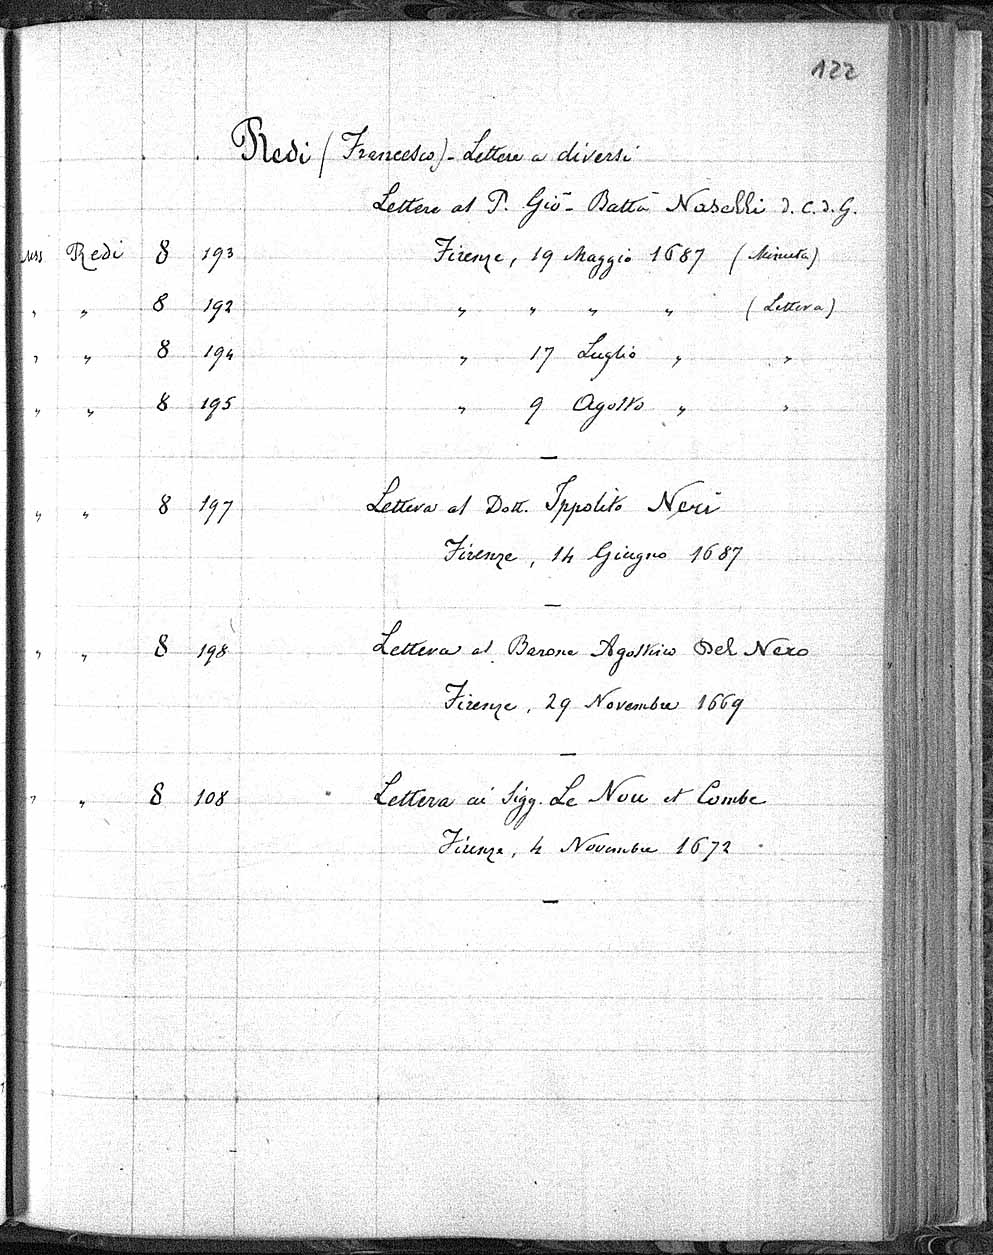 122
Redi (Francesco) - Lettere a diversi
Lettere al P. Gio - Batta Naselli d. C. d. G.
Mss Redi 8 193 Firenze, 19 Maggio 1687 (Minuta)
" " 8 192 " " " " (Lettera)
" " 8 194 " 17 Luglio " "
" " 8 195 " 9 Agosto " "
—
" " 8 197 Lettera al Dott. Ippolito Neri
Firenze, 14 Giugno 1687
—
" " 8 198 Lettera al Barone Agostino Del Nero
Firenze, 29 Novembre 1669
—
" " 8 108 Lettera ai Sigg. Le Nou et Combe
Firenze, 4 Novembre 1672
—